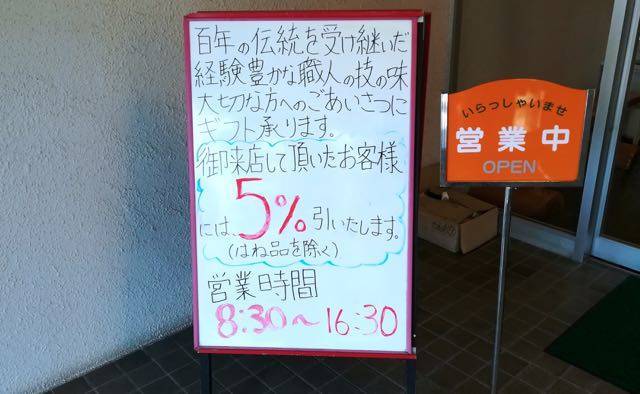 百年の伝統を受け継いだ
経験豊かな職人の技の味
大切な方へのごあいさつに
ギフト承ります。
御来店して頂いたお客様
には、5%引いたします。
(はね品を除く)
営業時間
8:30〜16:30
いらっしゃいませ
営業中
OPEN